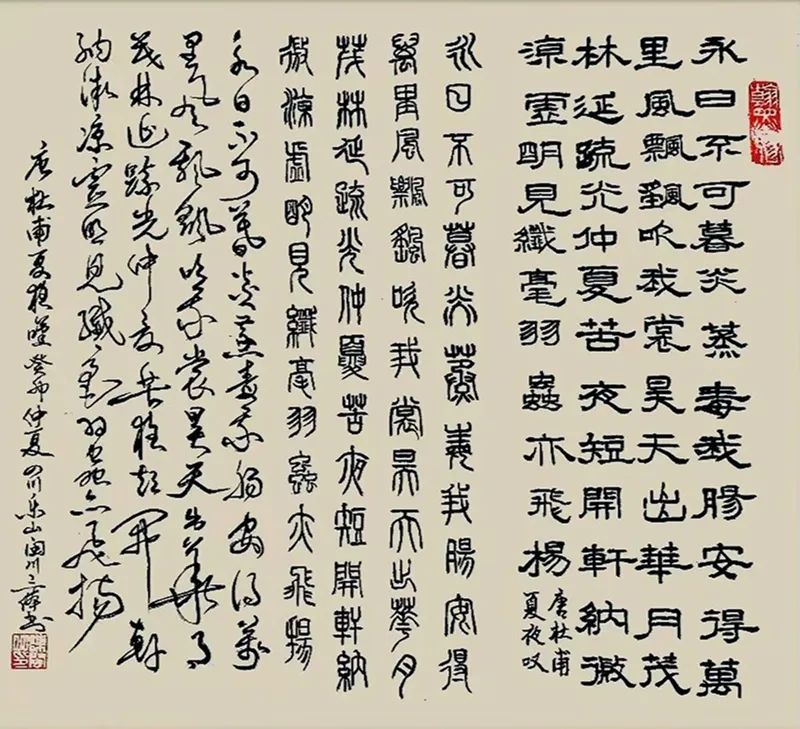 永日不可暮炎蒸毒我腸安得萬
里風飄颻吹我裳昊天出華月茂
林延疏光仲夏苦夜短開軒納微
涼虛明見纖毫羽蟲亦飛揚
唐杜甫
夏夜叹
永日不可暮炎蒸毒我腸安得
萬里風飄颻吹我裳昊天出華月
茂林延疏光仲夏苦夜短開軒納
微涼虛明見纖毫羽蟲亦飛揚
永日不可暮炎蒸毒我腸安得萬
里風飄颻吹我裳昊天出華月
茂林延疏光仲夏苦夜短開軒
納微涼虛明見纖毫羽蟲亦飛揚
唐杜甫夏夜嘆癸卯仲夏四川乐山